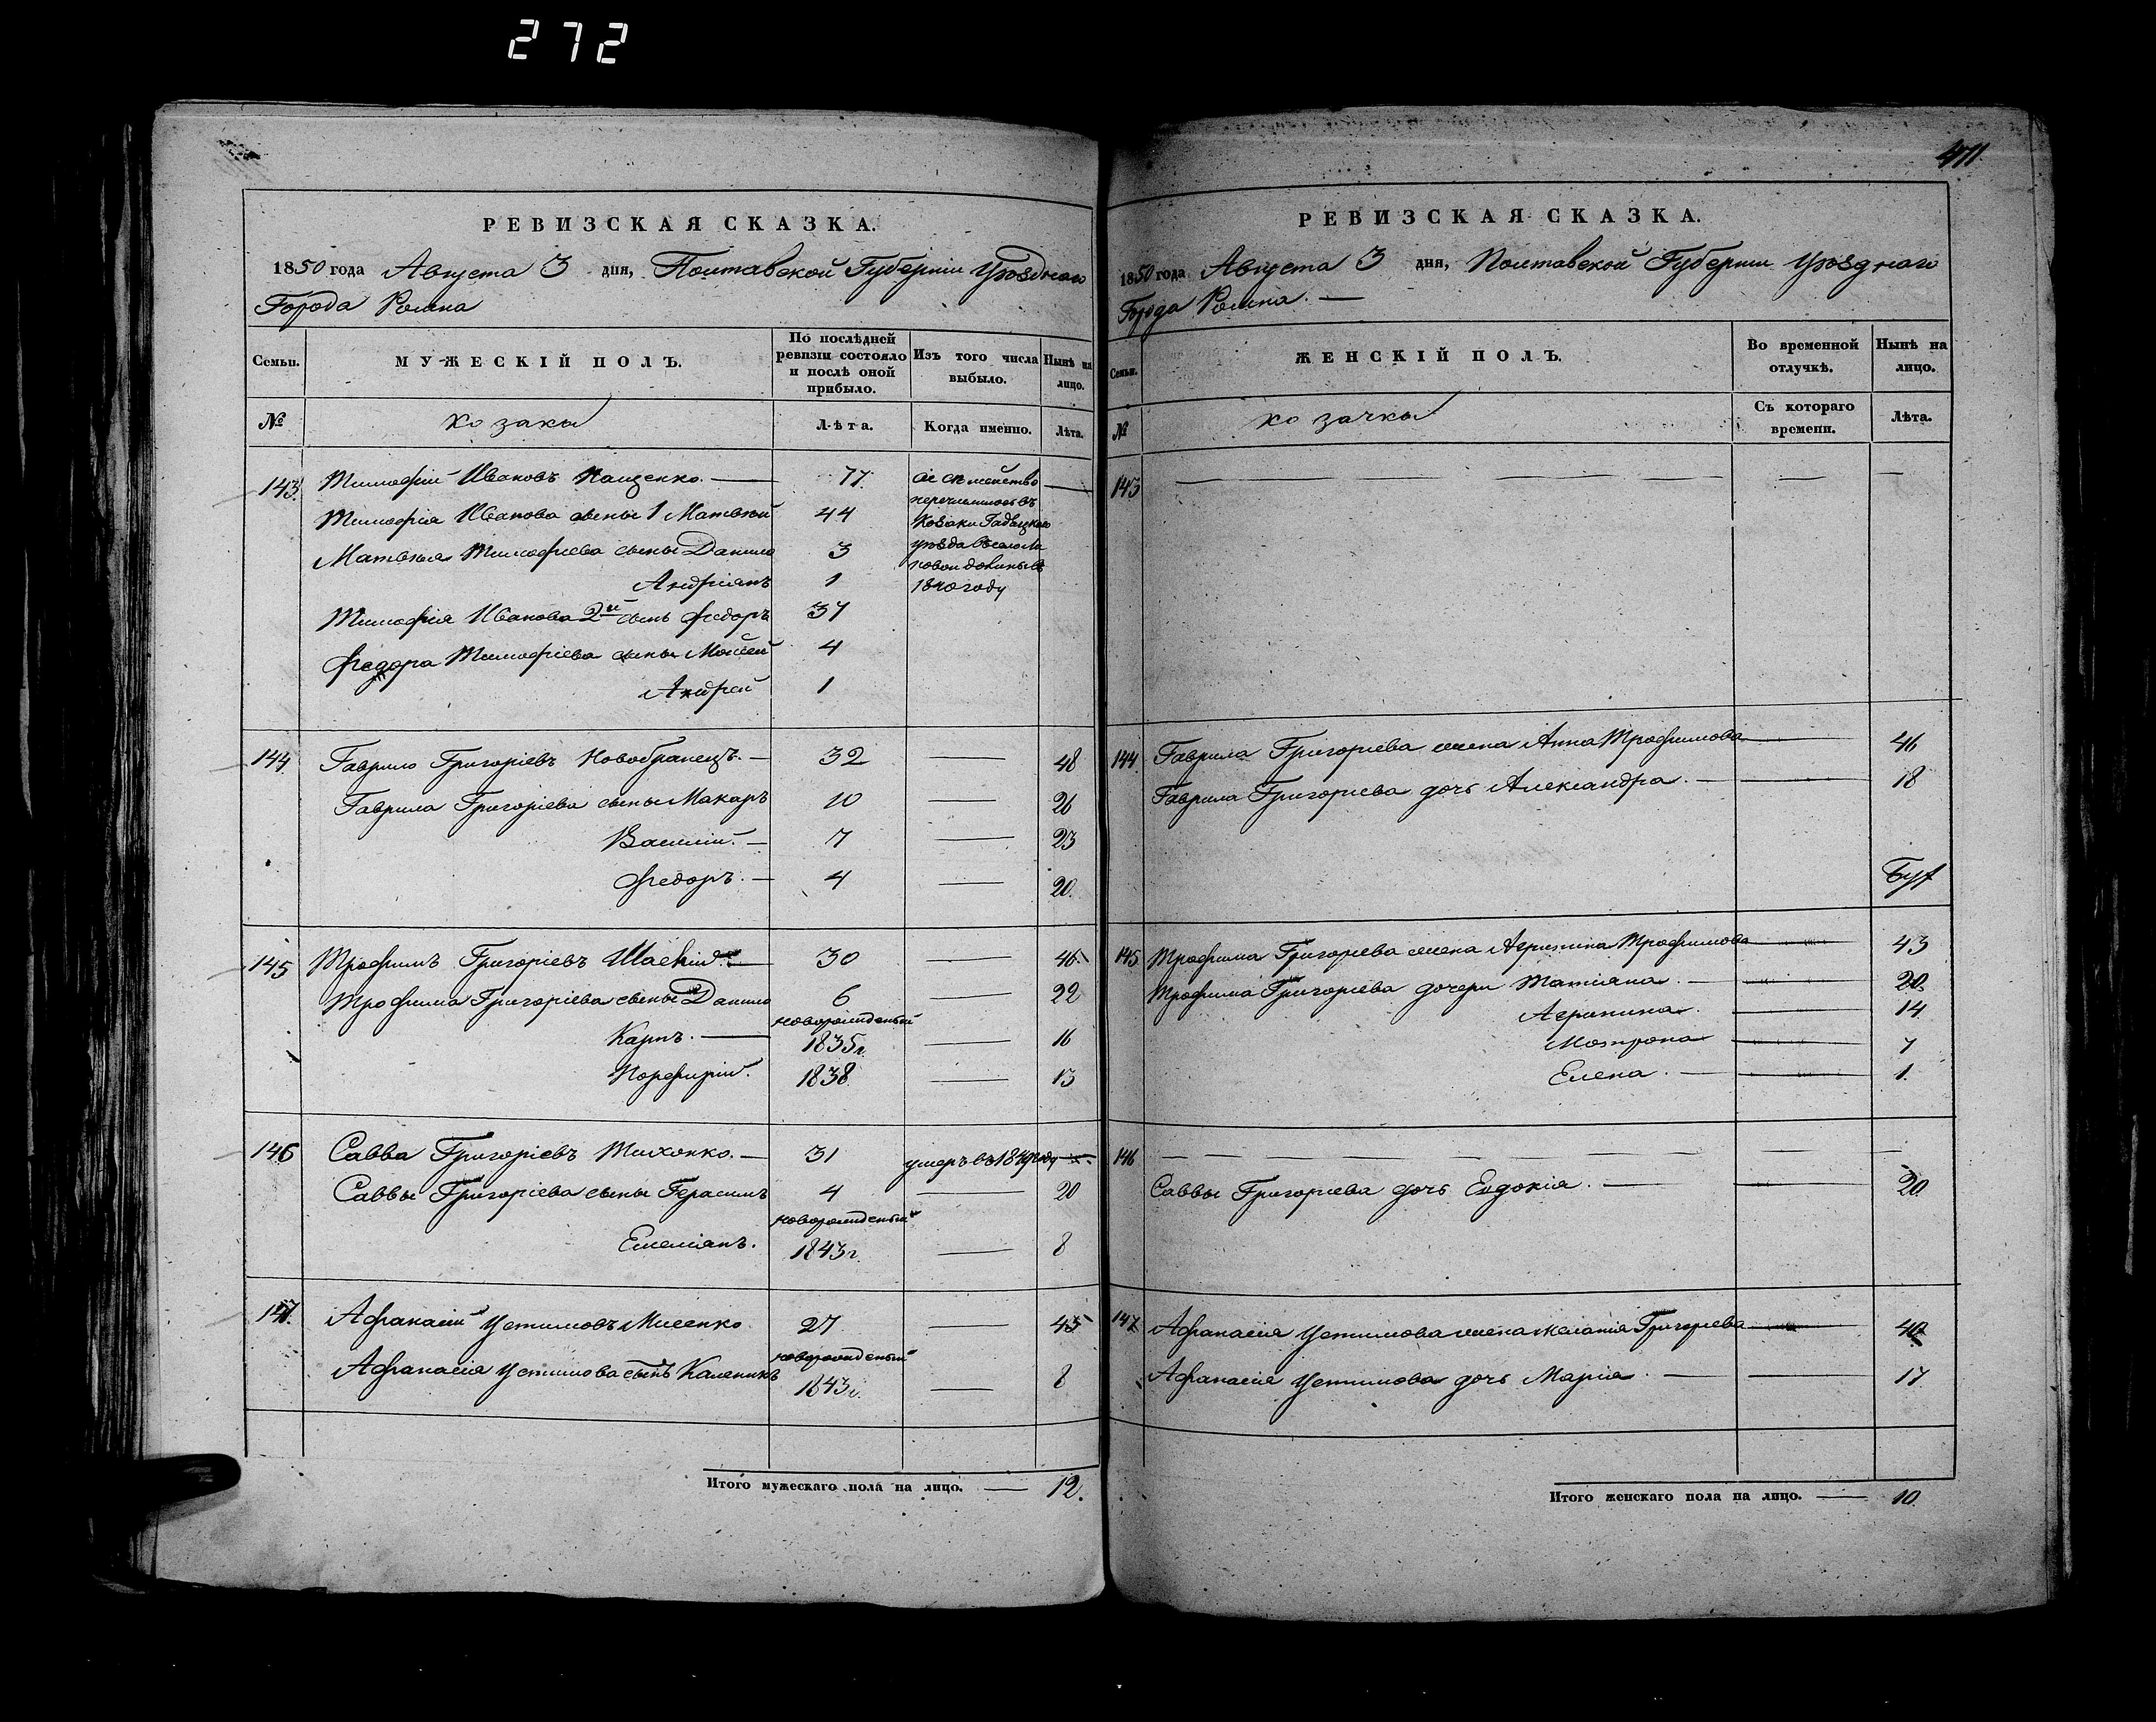 272
471
РЕВИЗСКАЯ СКАЗКА.
1850 года Августа 3 дня, Полтавской Губерніи Уѣзднаго
Города Ромна
Семьи. МУЖЕСКІЙ ПОЛЪ. По послѣдней ревизіи состояло и послѣ оной прибыло. Изъ того числа выбыло. Нынѣ на лицо.
№ козаки Лѣта. Когда именно. Лѣта.
143. Тимофій Ивановъ Кащенко. — 77. сіе семейство —
перечислилось въ
Тимофія Иванова сыны 1 Матвѣй 44 козаки Гадяцкого
Матвѣя Тимофіева сыны Данило 3 уѣзда
Андріянъ 1 1840 году
Тимофія Иванова 2й сынъ Федоръ 37
Федора Тимофіева сыны Мойсей 4
Андрей 1
144. Гаврило Григоріевъ Новобранецъ. — 32 — 48
Гаврила Григоріева сыны Макаръ 10 — 26
Василій. — 7 — 23
Федоръ. — 4 — 20.
145 Трофимъ Григоріевъ — 30 — 46
Трофима Григоріева сыны Данило 6 — 22
новорожденый
Карпъ. — 1835г. — 16
Порфирій. 1838. — 13
146 Савва Григоріевъ Тихонко. — 31 умеръ въ 1849 году —
Саввы Григоріева сыны Герасимъ 4 — 20
новорожденый
Емеліянъ. 1843г. — 8
147. Афанасій Устимовъ Мисенко 27 — 43
новорожденый
Афанасія Устимова сынъ Каленикъ 1843г. — 8
Итого мужескаго пола на лицо. — 12.
РЕВИЗСКАЯ СКАЗКА.
1850 года Августа 3 дня, Полтавской Губерніи Уѣзднаго
Города Ромна. —
Семьи. ЖЕНСКІЙ ПОЛЪ. Во временной отлучкѣ. Нынѣ на лицо.
№ козачки Съ котораго времени. Лѣта.
143 — — — — — — — —
144. Гаврила Григоріева жена Анна Трофимова — 46
Гаврила Григоріева дочь Александра. — — 18
145 Трофима Григоріева жена Агрипина Трофимова — 43
Трофима Григоріева дочери Татіяна. — — 20.
Агрипина. — 14
Мотрона — 7
Елена. — — 1.
146 — — — — — — — —
Саввы Григоріева дочь Евдокія. — — 20
147 Афанасія Устимова жена Меланія Григорьева — 40
Афанасія Устимова дочь Марія. — — 17
Итого женскаго пола на лицо. — 10.